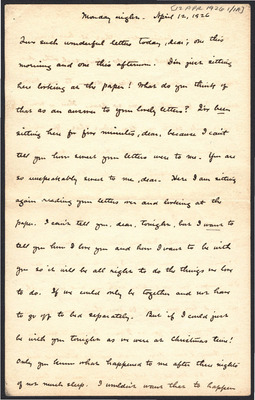 [12 APR 1926 1/1A]
Monday night. April 12, 1926
Two such wonderful letters today, dear; one this
morning and one this afternoon. I'm just sitting
here looking at the paper! What do you think of
that as an answer to your lovely letters? I've been
sitting here for five minutes, dear, because I can't
tell you how sweet your letters were to me. You are
so unspeakably sweet to me, dear. Here I am sitting
again reading your letters over and looking at the
paper. I can't tell you, dear, tonight, but I want to
tell you how I love you and how I want to be with
you so it will be all right to do the things we love
to do. If we could only be together and not have
to go off to bed separately. But if I could just
be with you tonight as we were at Christmas time!
Only you know what happened to me after three nights
of not much sleep. I wouldn't want that to happen